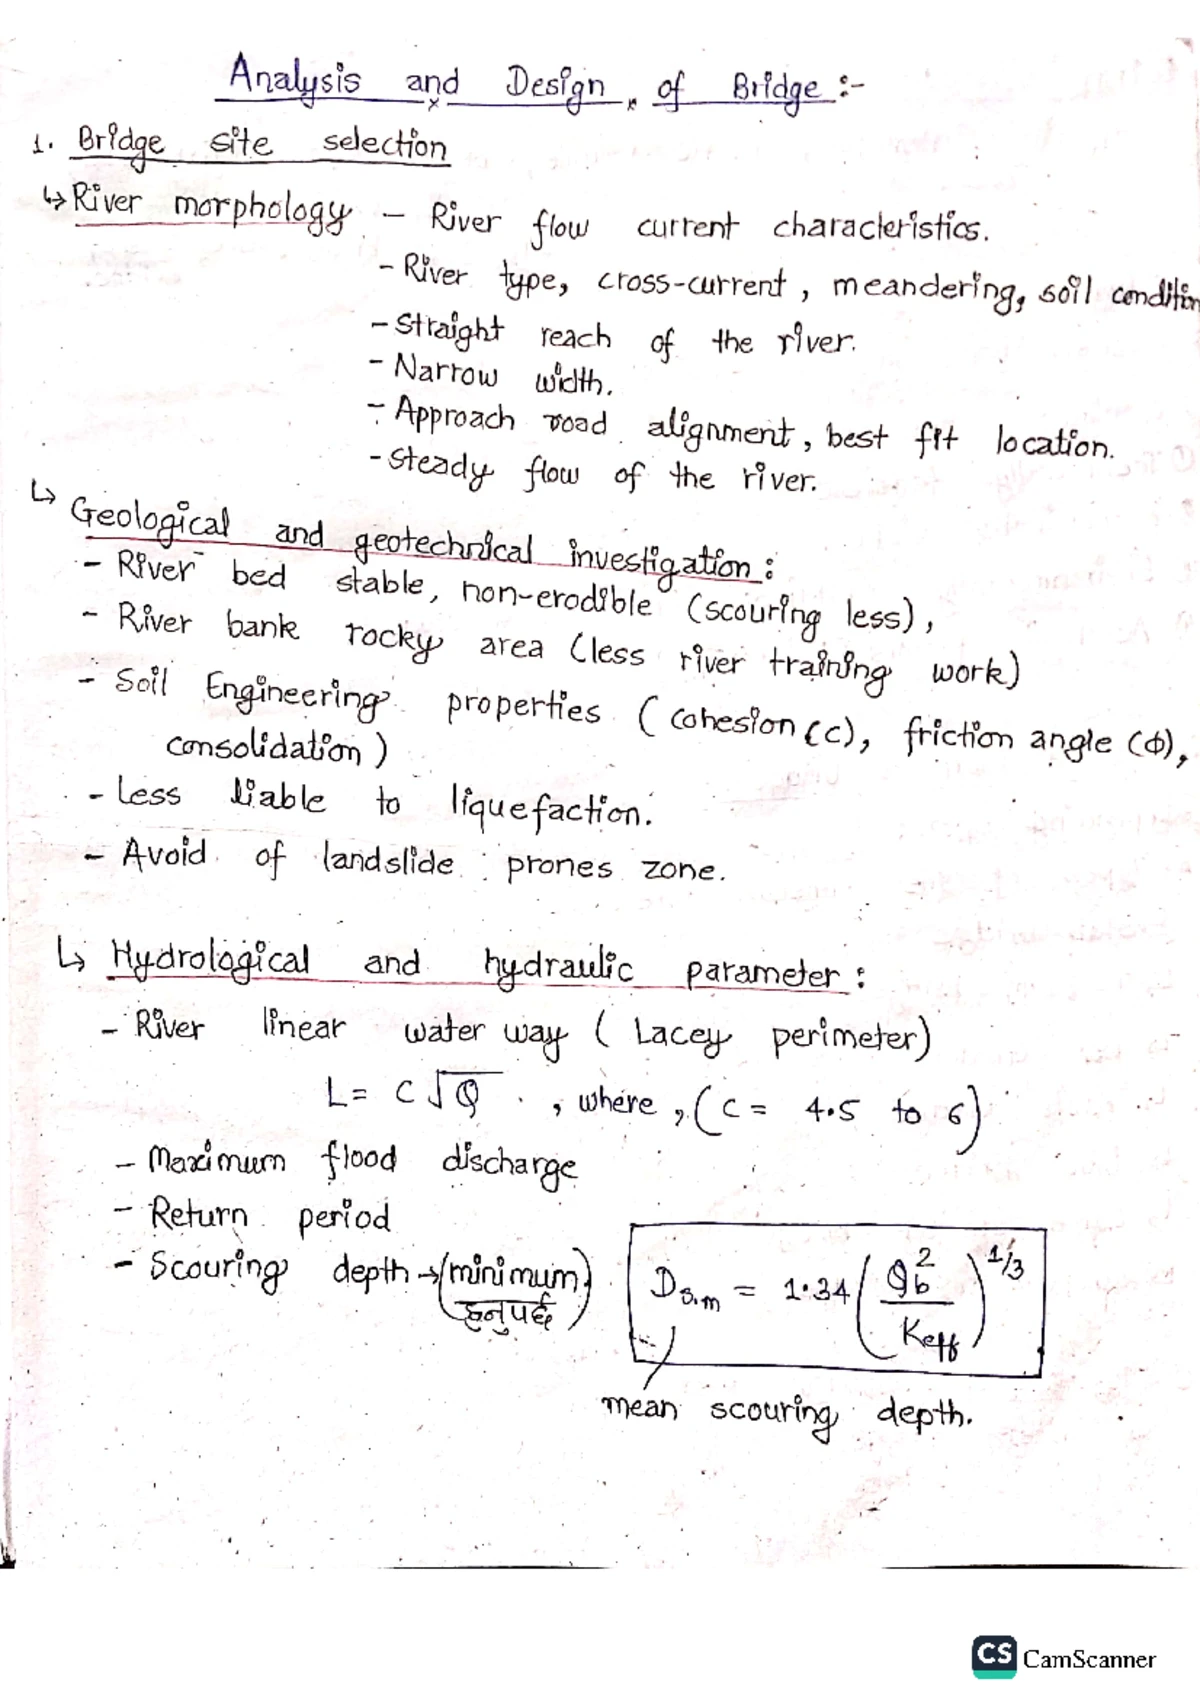 Analysis and Design of Bridge :-
1. Bridge site selection
↳ River morphology - River flow current characteristics.
- River type, cross-current, meandering, soil condition
- Straight reach of the river.
- Narrow width.
- Approach road alignment, best fit location.
- Steady flow of the river.
↳ Geological and geotechnical investigation :
- River bed stable, non-erodible (scouring less),
- River bank rocky area (less river training work)
- Soil Engineering properties (cohesion (c), friction angle (Φ),
consolidation)
- Less liable to liquefaction.
- Avoid of landslide prones zone.
↳ Hydrological and hydraulic parameter :
- River linear water way (Lacey perimeter)
L = C√Q , where, (C = 4.5 to 6)
- Maximum flood discharge
- Return period
- Scouring depth → (minimum हुनुपर्छ) Ds.m = 1.34 (qb² / Keff)^1/3
mean scouring depth.
CS CamScanner